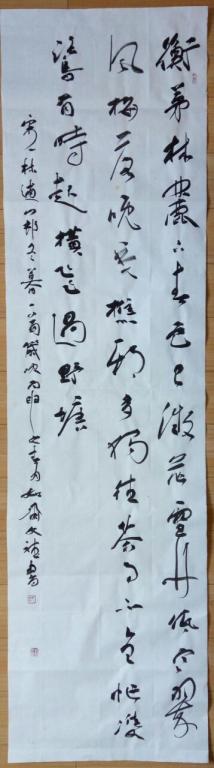 衡茅林麓下春色已微茫雪竹低寒翠
風梅落晚香樵期多獨往茶事不全忙雙
鷺有時起橫飛過野塘
宋林逋山邨冬暮一首歲次丙申月書